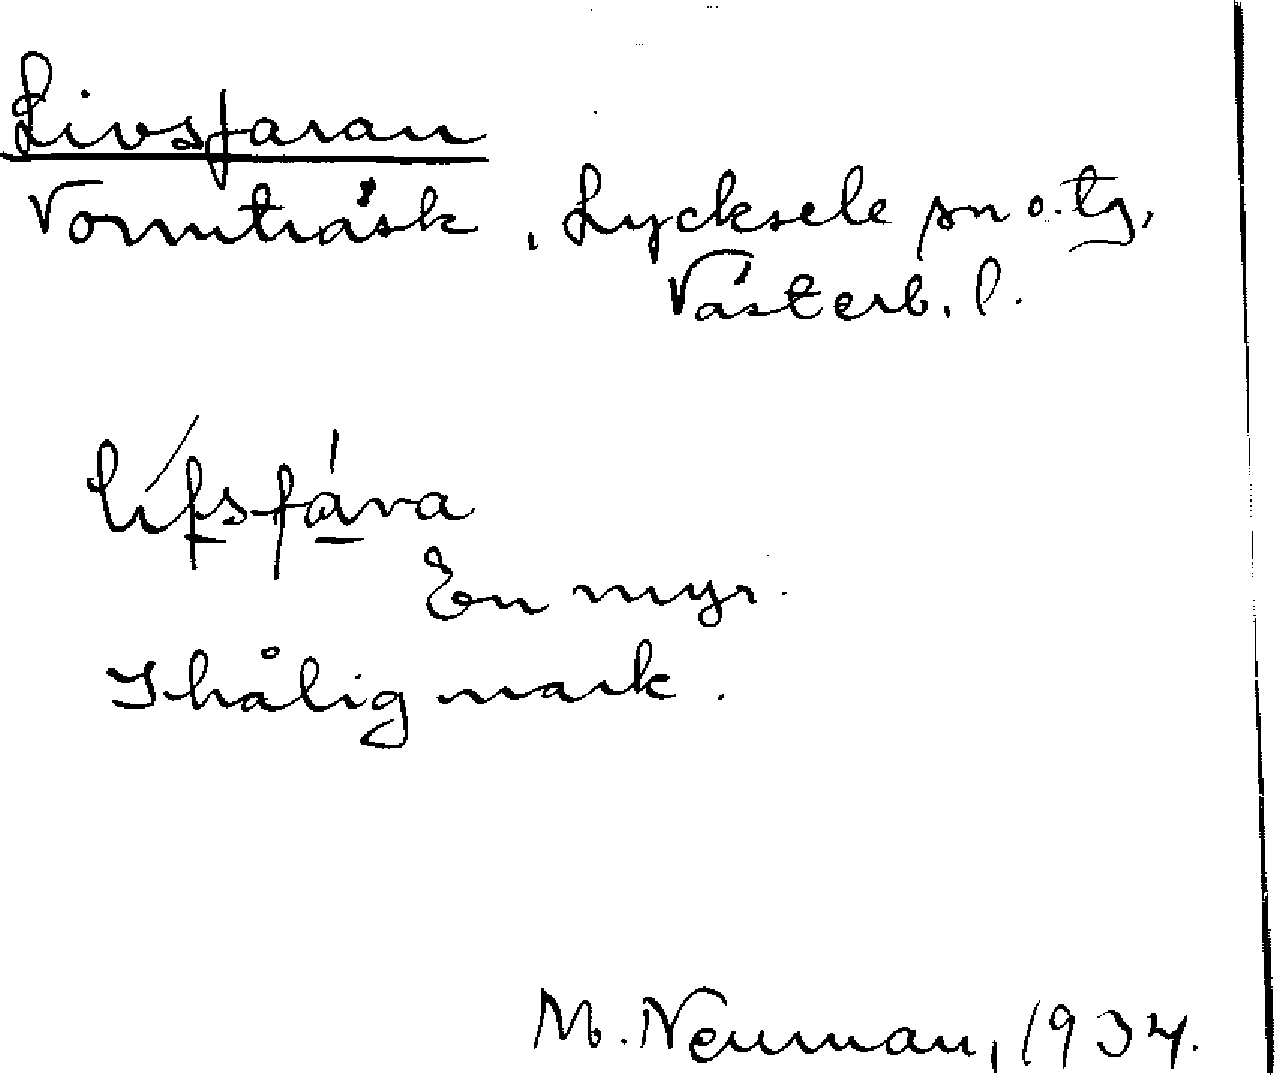 Livsfaran
Vormträsk, Lycksele sn o. tg,
Västerb. l.
lífsfára
En myr.
Ihålig mark.
M. Neuman, 1934.